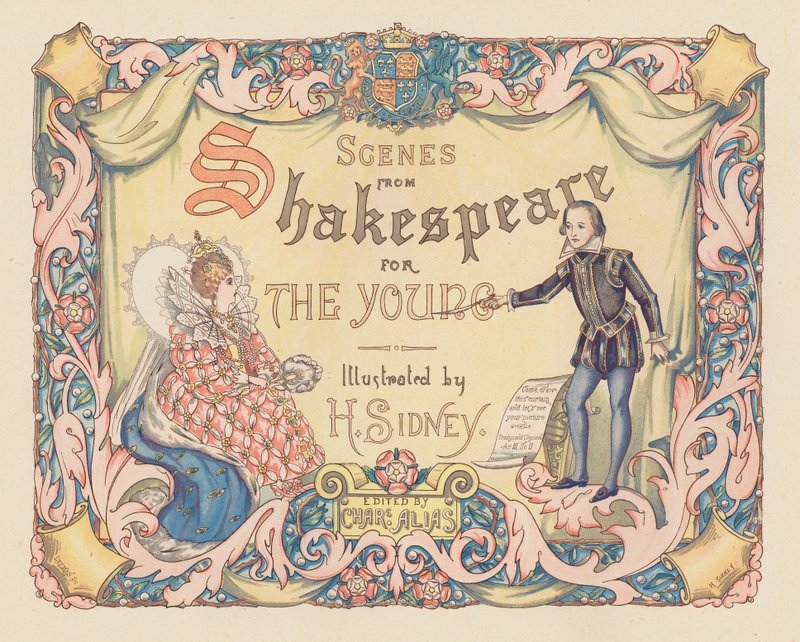 Scenes
from
Shakespeare
for
The Young
Illustrated by
H. Sidney.
Come, draw
this curtain,
and let's see
your picture
Troilus and Cressida
Act III, Sc II
Edited by
Chars. Alias
H. Sidney